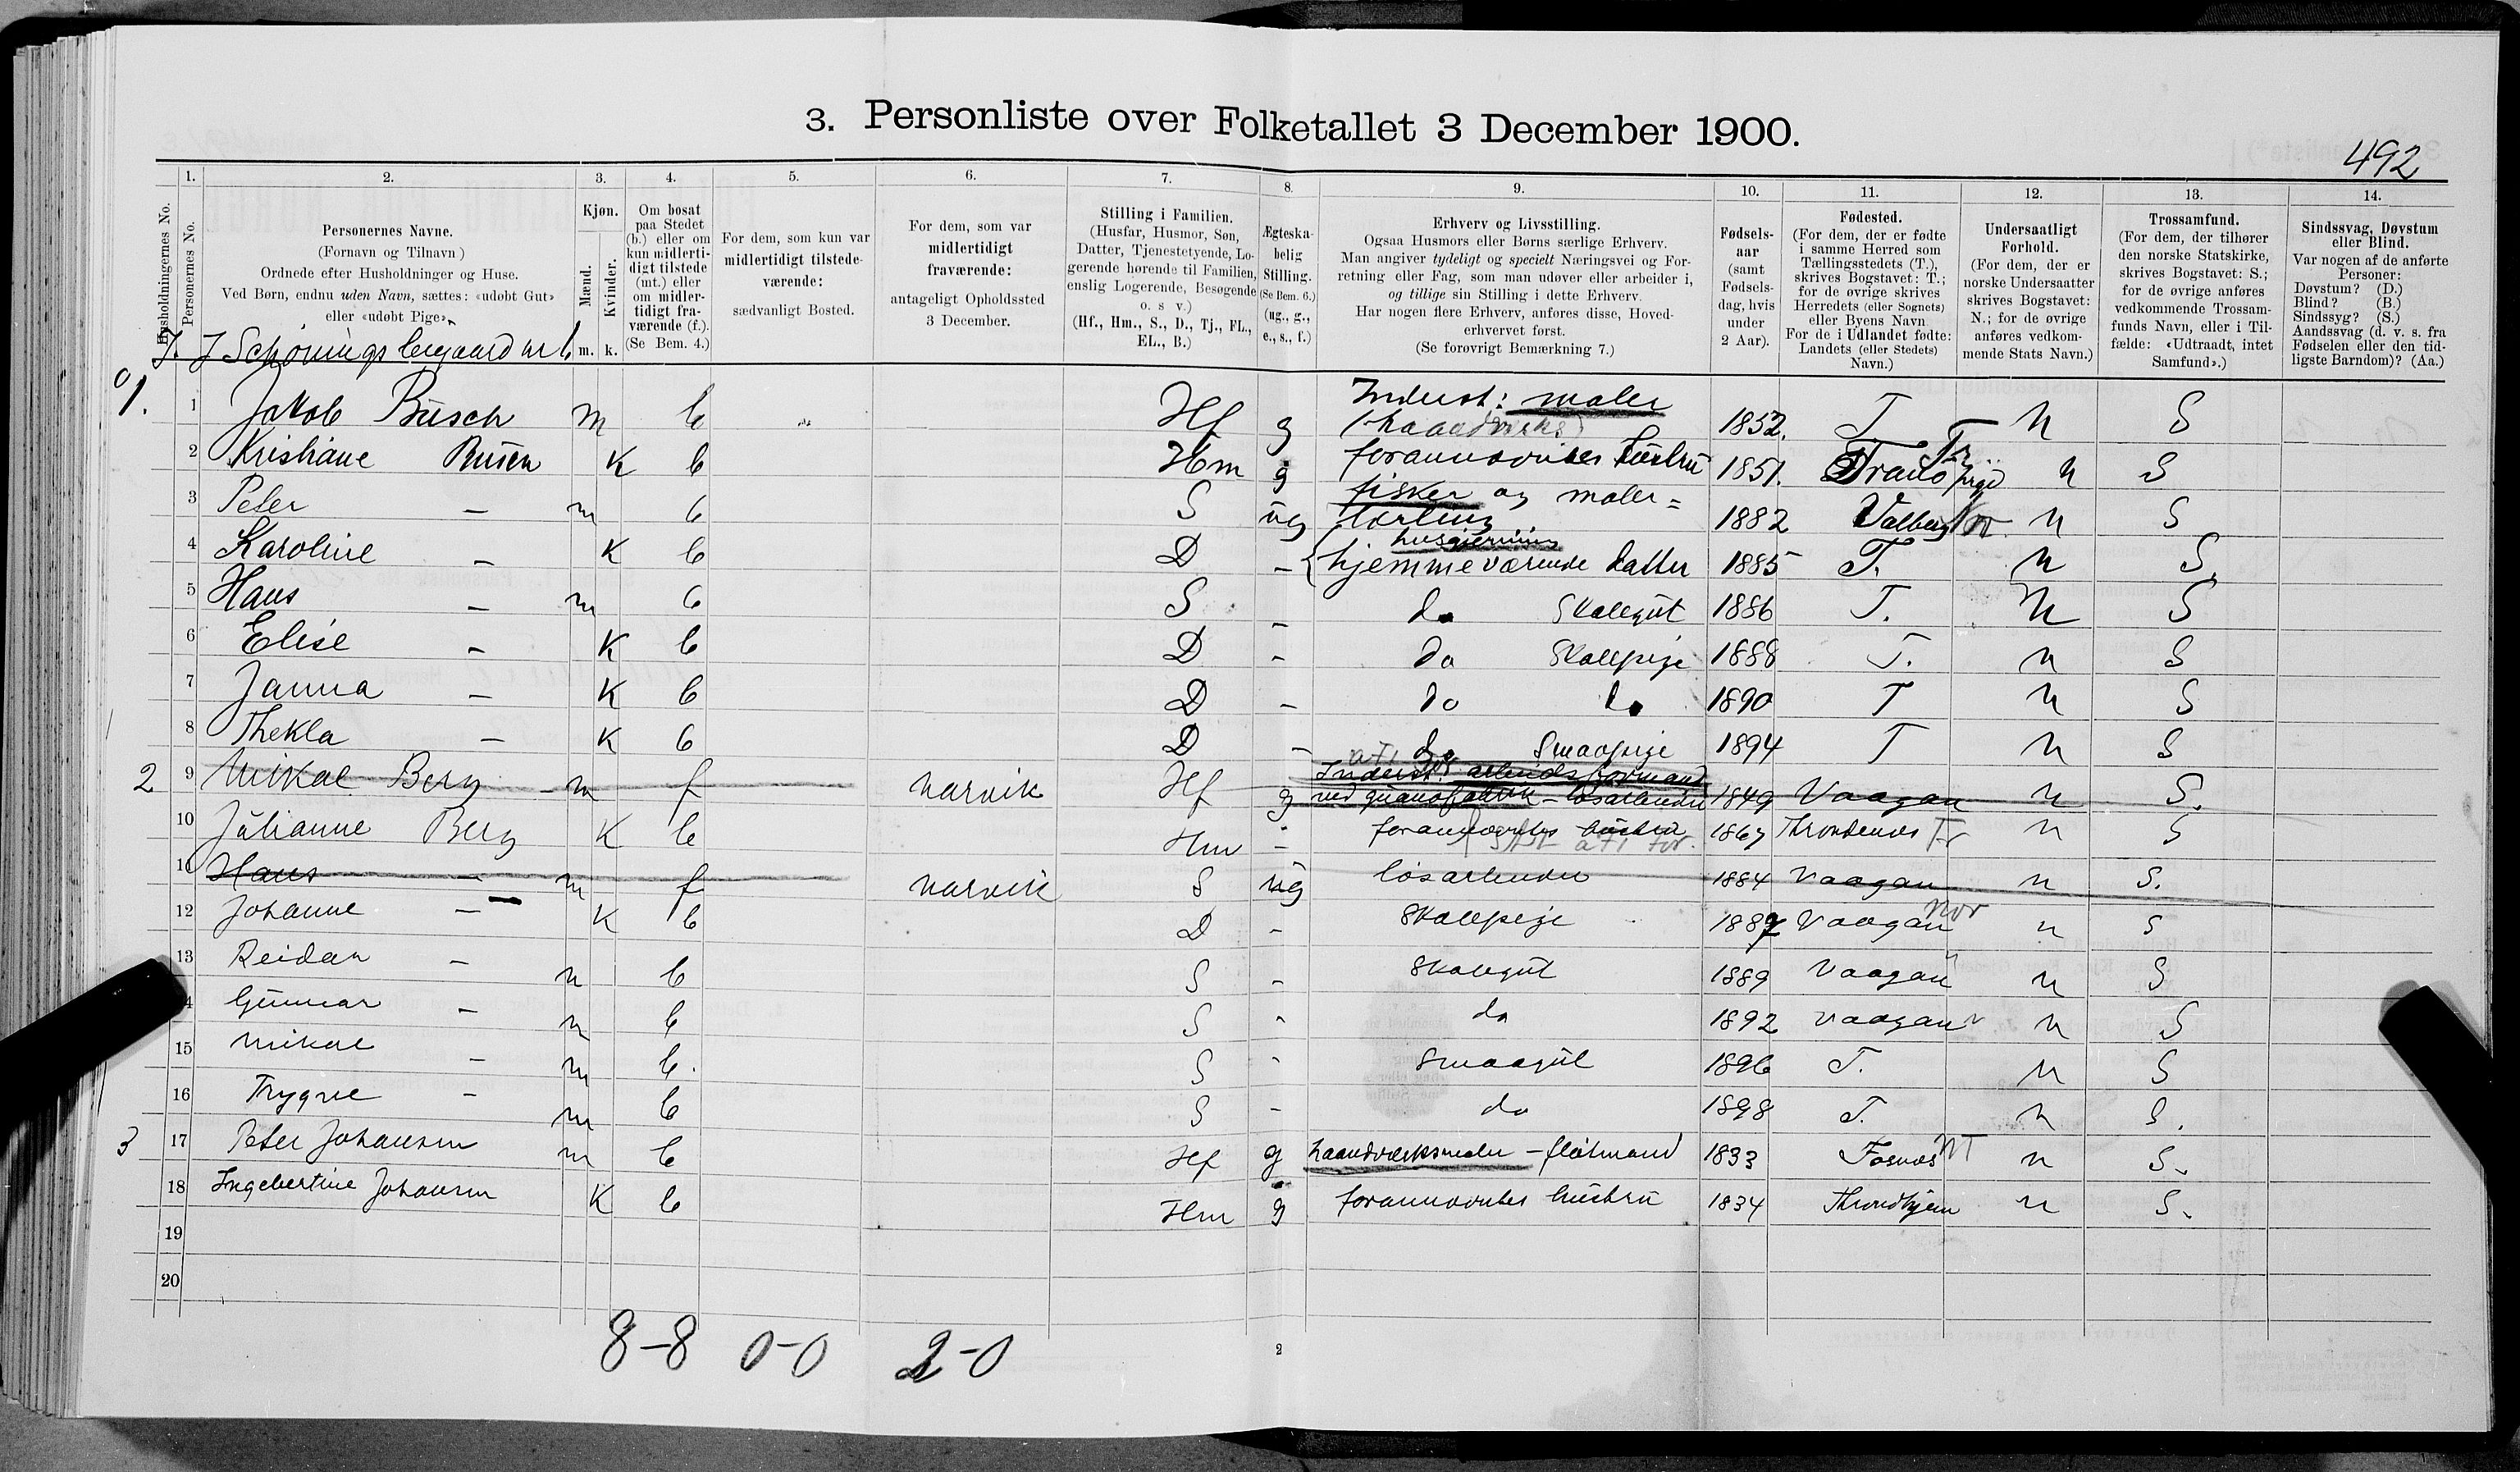 3. Personliste over Folketallet 3 December 1900.
492
Husholdningernes No.
1.
Personernes No.
2.
Personernes Navne.
(Fornavn og Tilnavn)
Ordnede efter Husholdninger og Huse.
Ved Børn, endnu uden Navn, sættes: «udøbt Gut»
eller «udøbt Pige».
3.
Kjøn.
Mænd.
Kvinder.
m. k.
4.
Om bosat
paa Stedet
(b.) eller om
kun midlerti-
digt tilstede
(mt.) eller
om midler-
tidigt fra-
værende (f.).
(Se Bem. 4.)
5.
For dem, som kun var
midlertidigt tilstede-
værende:
sædvanligt Bosted.
6.
For dem, som var
midlertidigt
fraværende:
antageligt Opholdssted
3 December.
7.
Stilling i Familien.
(Husfar, Husmor, Søn,
Datter, Tjenestetyende, Lo-
gerende hørende til Familien,
enslig Logerende, Besøgende
o. s v.)
(Hf., Hm., S., D., Tj., FL.,
EL., B.)
8.
Ægteska-
belig
Stilling.
(Se Bem. 6.)
(ug., g.,
e., s., f.)
9.
Erhverv og Livsstilling.
Ogsaa Husmors eller Børns særlige Erhverv.
Man angiver tydeligt og specielt Næringsvei og For-
retning eller Fag, som man udøver eller arbeider i,
og tillige sin Stilling i dette Erhverv.
Har nogen flere Erhverv, anføres disse, Hoved-
erhvervet først.
(Se forøvrigt Bemærkning 7.)
10.
Fødsels-
aar
(samt
Fødsels-
dag, hvis
under
2 Aar).
11.
Fødested.
(For dem, der er fødte
i samme Herred som
Tællingsstedets (T.),
skrives Bogstavet: T.;
for de øvrige skrives
Herredets (eller Sognets)
eller Byens Navn
For de i Udlandet fødte:
Landets (eller Stedets)
Navn.)
12.
Undersaatligt
Forhold.
(For dem, der er
norske Undersaatter
skrives Bogstavet:
N.; for de øvrige
anføres vedkom-
mende Stats Navn.)
13.
Trossamfund.
(For dem, der tilhører
den norske Statskirke,
skrives Bogstavet: S.;
for de øvrige anføres
vedkommende Trossam-
funds Navn, eller i Til-
fælde: «Udtraadt, intet
Samfund».)
14.
Sindssvag, Døvstum
eller Blind.
Var nogen af de anførte
Personer:
Døvstum? (D.)
Blind? (B.)
Sindssyg? (S.)
Aandssvag (d. v. s. fra
Fødselen eller den tid-
ligste Barndom)? (Aa.)
J. J Schønings
1. 1 Jakob Busch m b Hf g Indust: maler 1852. T n S
2 Kristiane Busch K b Hm g forannævntes hustru 1851. Tranø Tr n S
3 Peter - m b S ug fisker og maler=
lærling 1882 Valberg n S
4 Karoline - K b D - husgjerning
hjemmeværende datter 1885 T. n S.
5 Hans - m b S - do Skolegut 1886 T. n S
6 Elise - K b D - do Skolepige 1888 T. n S
7 Janna - K b D - do do 1890 T n S
8 Thekla - K b D - do Smaapige 1894 T n S
2 9 Mikal Berg m f Narvik Hf g Indust: arbeidsformand
ved guanofabrik - løsarbeider 1849 Vaagan n S.
10 Julianne Berg K b Hm - forannævntes hustru 1867 Throndenes Tr n S
11 Hans - m f Narvik S ug løsarbeider 1884 Vaagan n S.
12 Johanne - K b D - Skolepige 1887 Vaagan Nor n S
13 Reidar - m b S - Skolegut 1889 Vaagan n S
14 Gunnar - m b S - do 1892 Vaagan n S
15 Mikal - m b. S - Smaagut 1896 T. n S
16 Trygve - m b S - do 1898 T. n S.
3 17 Peter Johansen m b Hf g haandværksmaler - fløtmand 1833 Fosnæs NT n S.
18 Ingebertine Johansen K b Hm g forannævntes hustru 1834 Throndhjem n S.
19
20
8-8 0-0 2-0
2